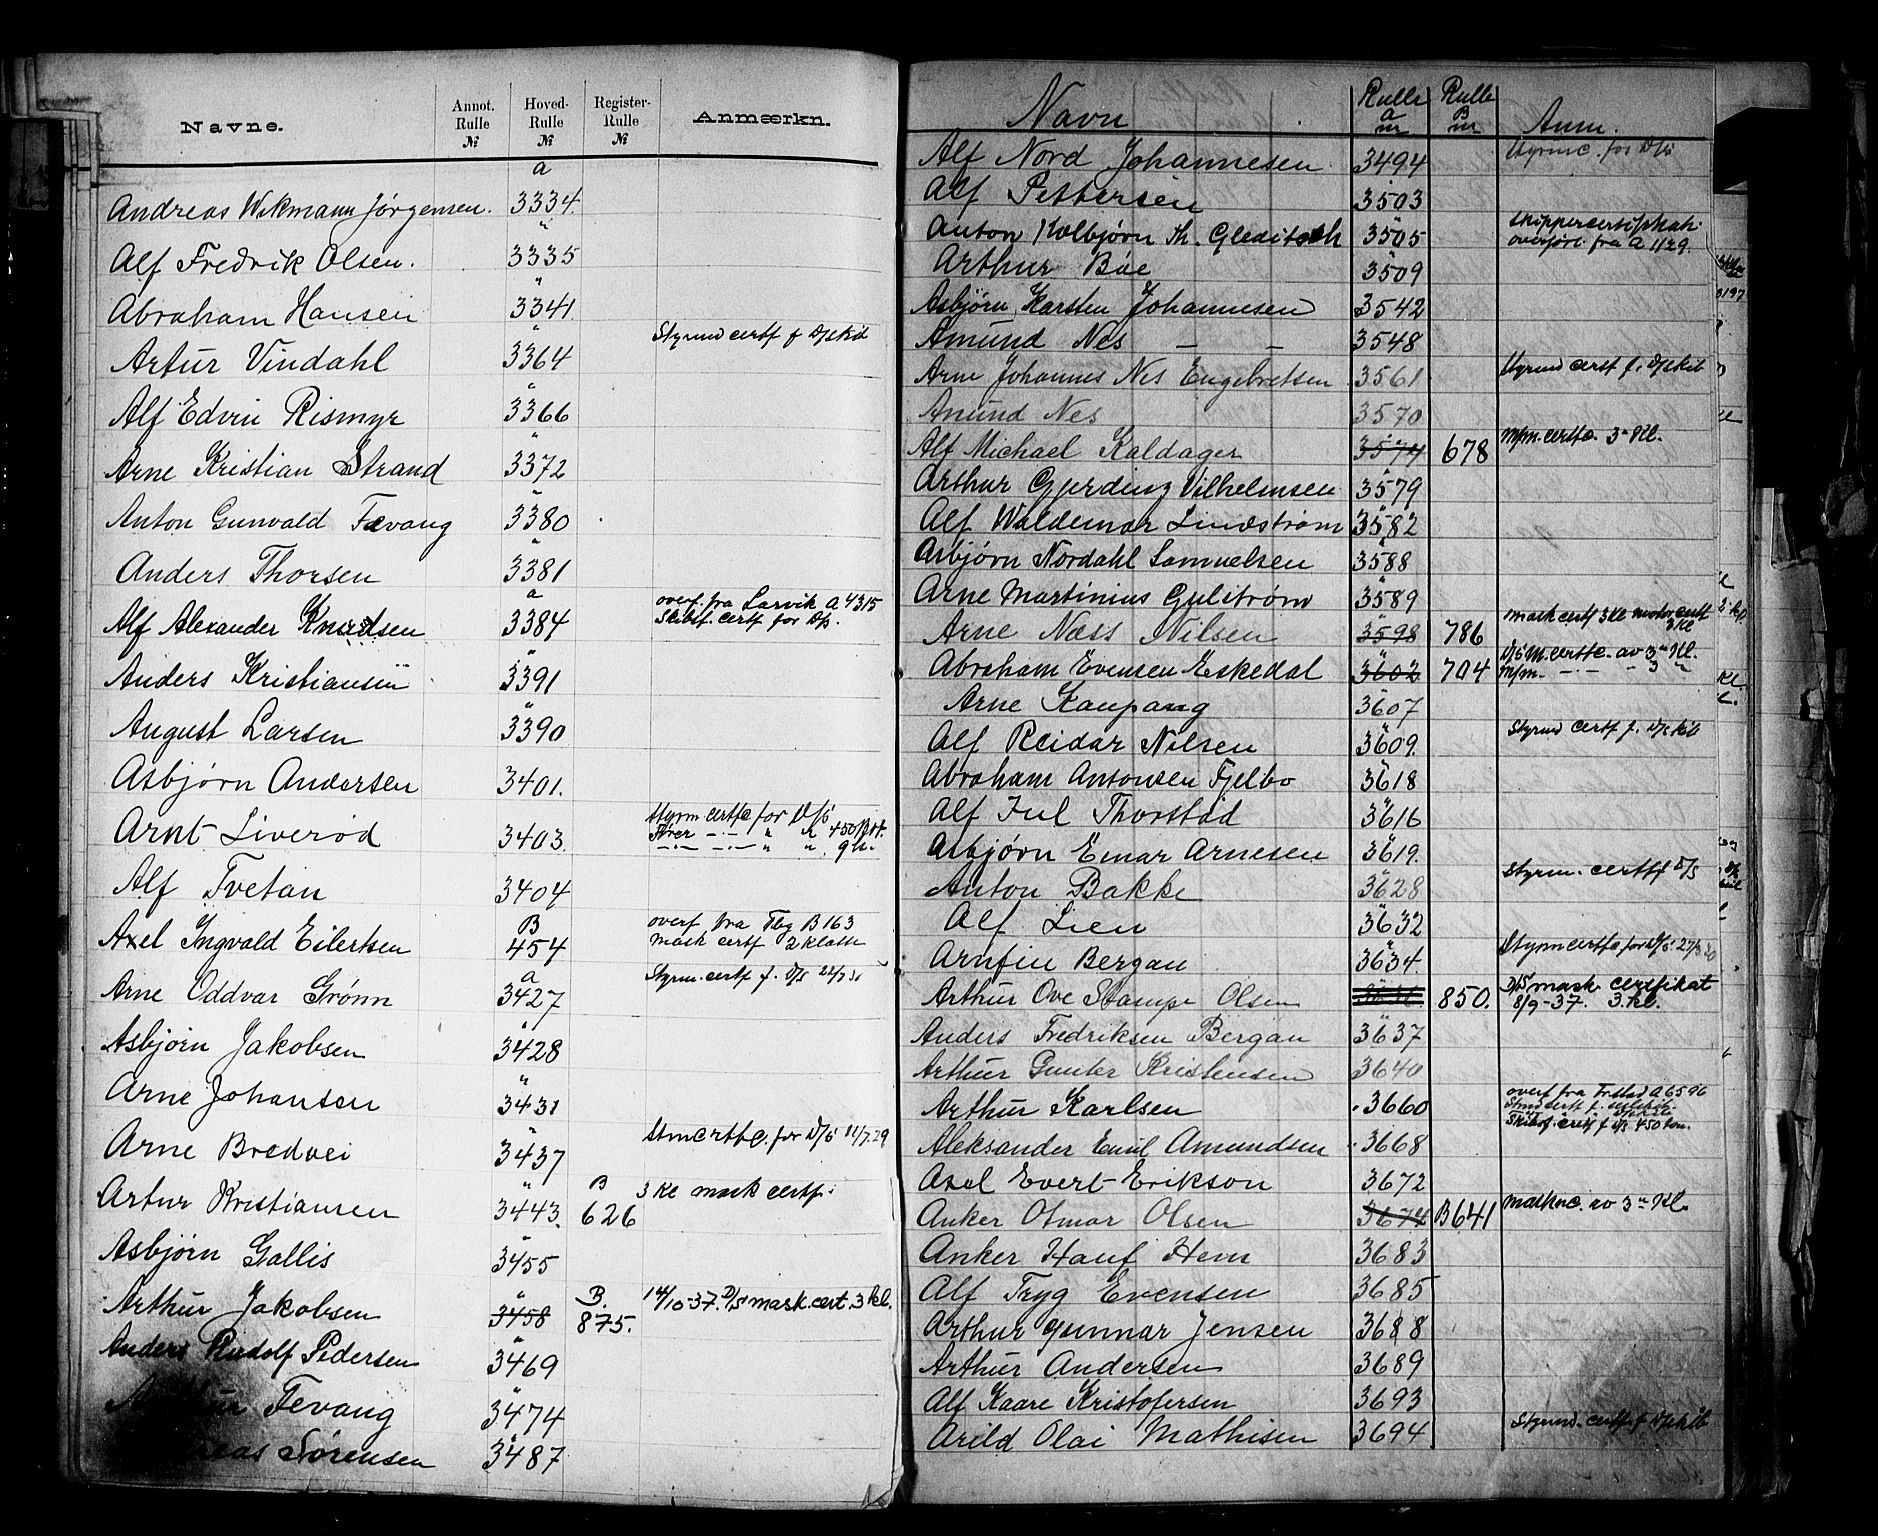 Navne. Annot. Rulle № Hoved- Rulle № Register- Rulle № Anmærkn.
a
Andreas Wikmann Jørgensen. 3334
Alf Fredrik Olsen. " 3335
Abraham Hansen " 3341
Artur Vindahl " 3364 Styrmd certf f D/skib
Alf Edvin Rismyr " 3366
Arne Kristian Strand " 3372
Anton Gunvald Tevang " 3380
Anders Thorsen " 3381
Alf Alexander Knudsen a 3384 overf. fra Larvik A 4315
Skibsf. certf for D/s.
Anders Kristiansen " 3391
August Larsen " 3390
Asbjørn Andersen 3401.
Arnt Liverød 3403. Styrm certfc for D/s
Fører — " — " 450 Brt.
Alf Tvetan 3404
Axel Ingvald Eilertsen B 454 overf fra Tbg B 163
mask certf 2 klasse
Arne Oddvar Grønn a 3427 Styrm. certf f. D/s 22/7 31
Asbjørn Jakobsen " 3428
Arne Johansen " 3431
Arne Bredvei " 3437 Stmcertfc. for D/s 11/7.29
Artur Kristiansen " 3443. B 626 3 kl mask certf.
Asbjørn Gallis " 3455
Arthur Jakobsen " 3458 B. 875. 14/10-37. D/s mask. cert. 3 kl.
Anders Rudolf Pedersen " 3469
Tevang " 3474
Sørensen " 3487
Navn Rulle a nr Rulle B nr Anm.
Alf Nord Johannesen 3494 Styrmc. for D/s
Alf Pettersen 3503
Anton Kolbjørn Th. Gleditsch " 3505 skippercertifikat
overført fra A 1129.
Arthur Bøe " 3509
Asbjørn Karsten Johannesen " 3542
Amund Nes — — 3548
Arne Johannes Nes Engebretsen 3561 Styrmd certf f. D/skib
Amund Nes 3570
Alf Michael Kaldager 3574 678 M/m. certfc. 3die Kl.
Arthur Gjerding Vilhelmsen " 3579
Alf Waldemar Lindstrøm " 3582
Asbjørn Nordahl Samuelsen " 3588
Arne Martinius Gulstrøm " 3589
Arne Næss Nilsen 3598 786 Mask certf 3 kl motor certf
3 kl
Abraham Evensen Eskedal " 3602 704 D/s M. certfc. av 3die Kl.
M/m. — " — " 3 "
Arne Kaupang " 3607
Alf Reidar Nilsen " 3609. Styrmd certf f. D/skib
Abraham Antonsen Fjelbo " 3618
Alf Jul Thorstad " 3616
Asbjørn Einar Arnesen " 3619.
Anton Bakke " 3628 Styrm. certff D/s
Alf Lien " 3632
Arnfin Bergan " 3634. Styrmcertfc for D/s
Arthur Ove Stampe Olsen 850. D/s mask certifikat
8/9-37. 3. kl.
Anders Fredriksen Bergan " 3637
Arthur Gunter Kristensen 3640
Arthur Karlsen 3660 overf fra Frstad A 6596
Skibsf. certf f D/s 450 ton.
Aleksander Emil Amundsen 3668
Axel Evert Erikson 3672
Anker Otmar Olsen 3674 B641 Maskinc. av 3die Kl.
Anker Hauf Hem 3683
Alf Tryg Evensen 3685
Arthur Gunnar Jensen 3688
Arthur Andersen 3689
Alf Kaare Kristofersen 3693
Arild Olai Mathisen 3694 Styrmd. certf. f D/skib